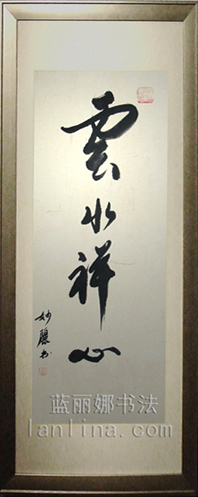 雲水祥心
妙麗书
蓝丽娜书法
lanlina.com